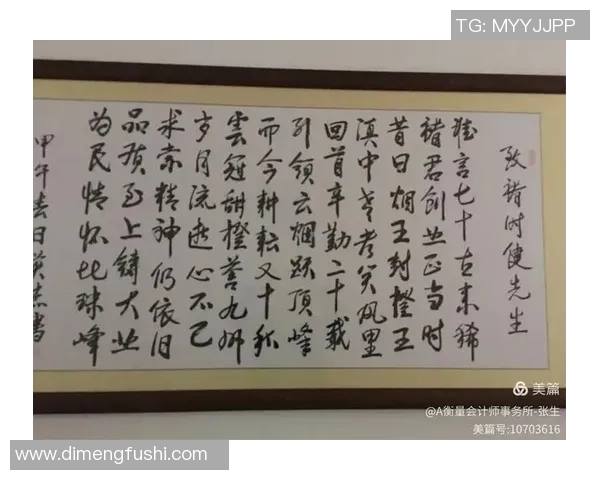 TG: MYYJJPP
致褚时健先生
谁言七十古来稀
褚君创业正当时
昔日烟王封橙王
滇中笑风里
回首辛勤二十载
引领云烟跃顶峰
而今耕耘又十秋
雲冠甜橙誉九州
岁月流逝心不已
求索精神仍依旧
品质至上铸大业
为民情怀比珠峰
甲午春日书
美篇
@A衡量会计师事务所-张生
美篇号:10703616
www.dimengfushi.com